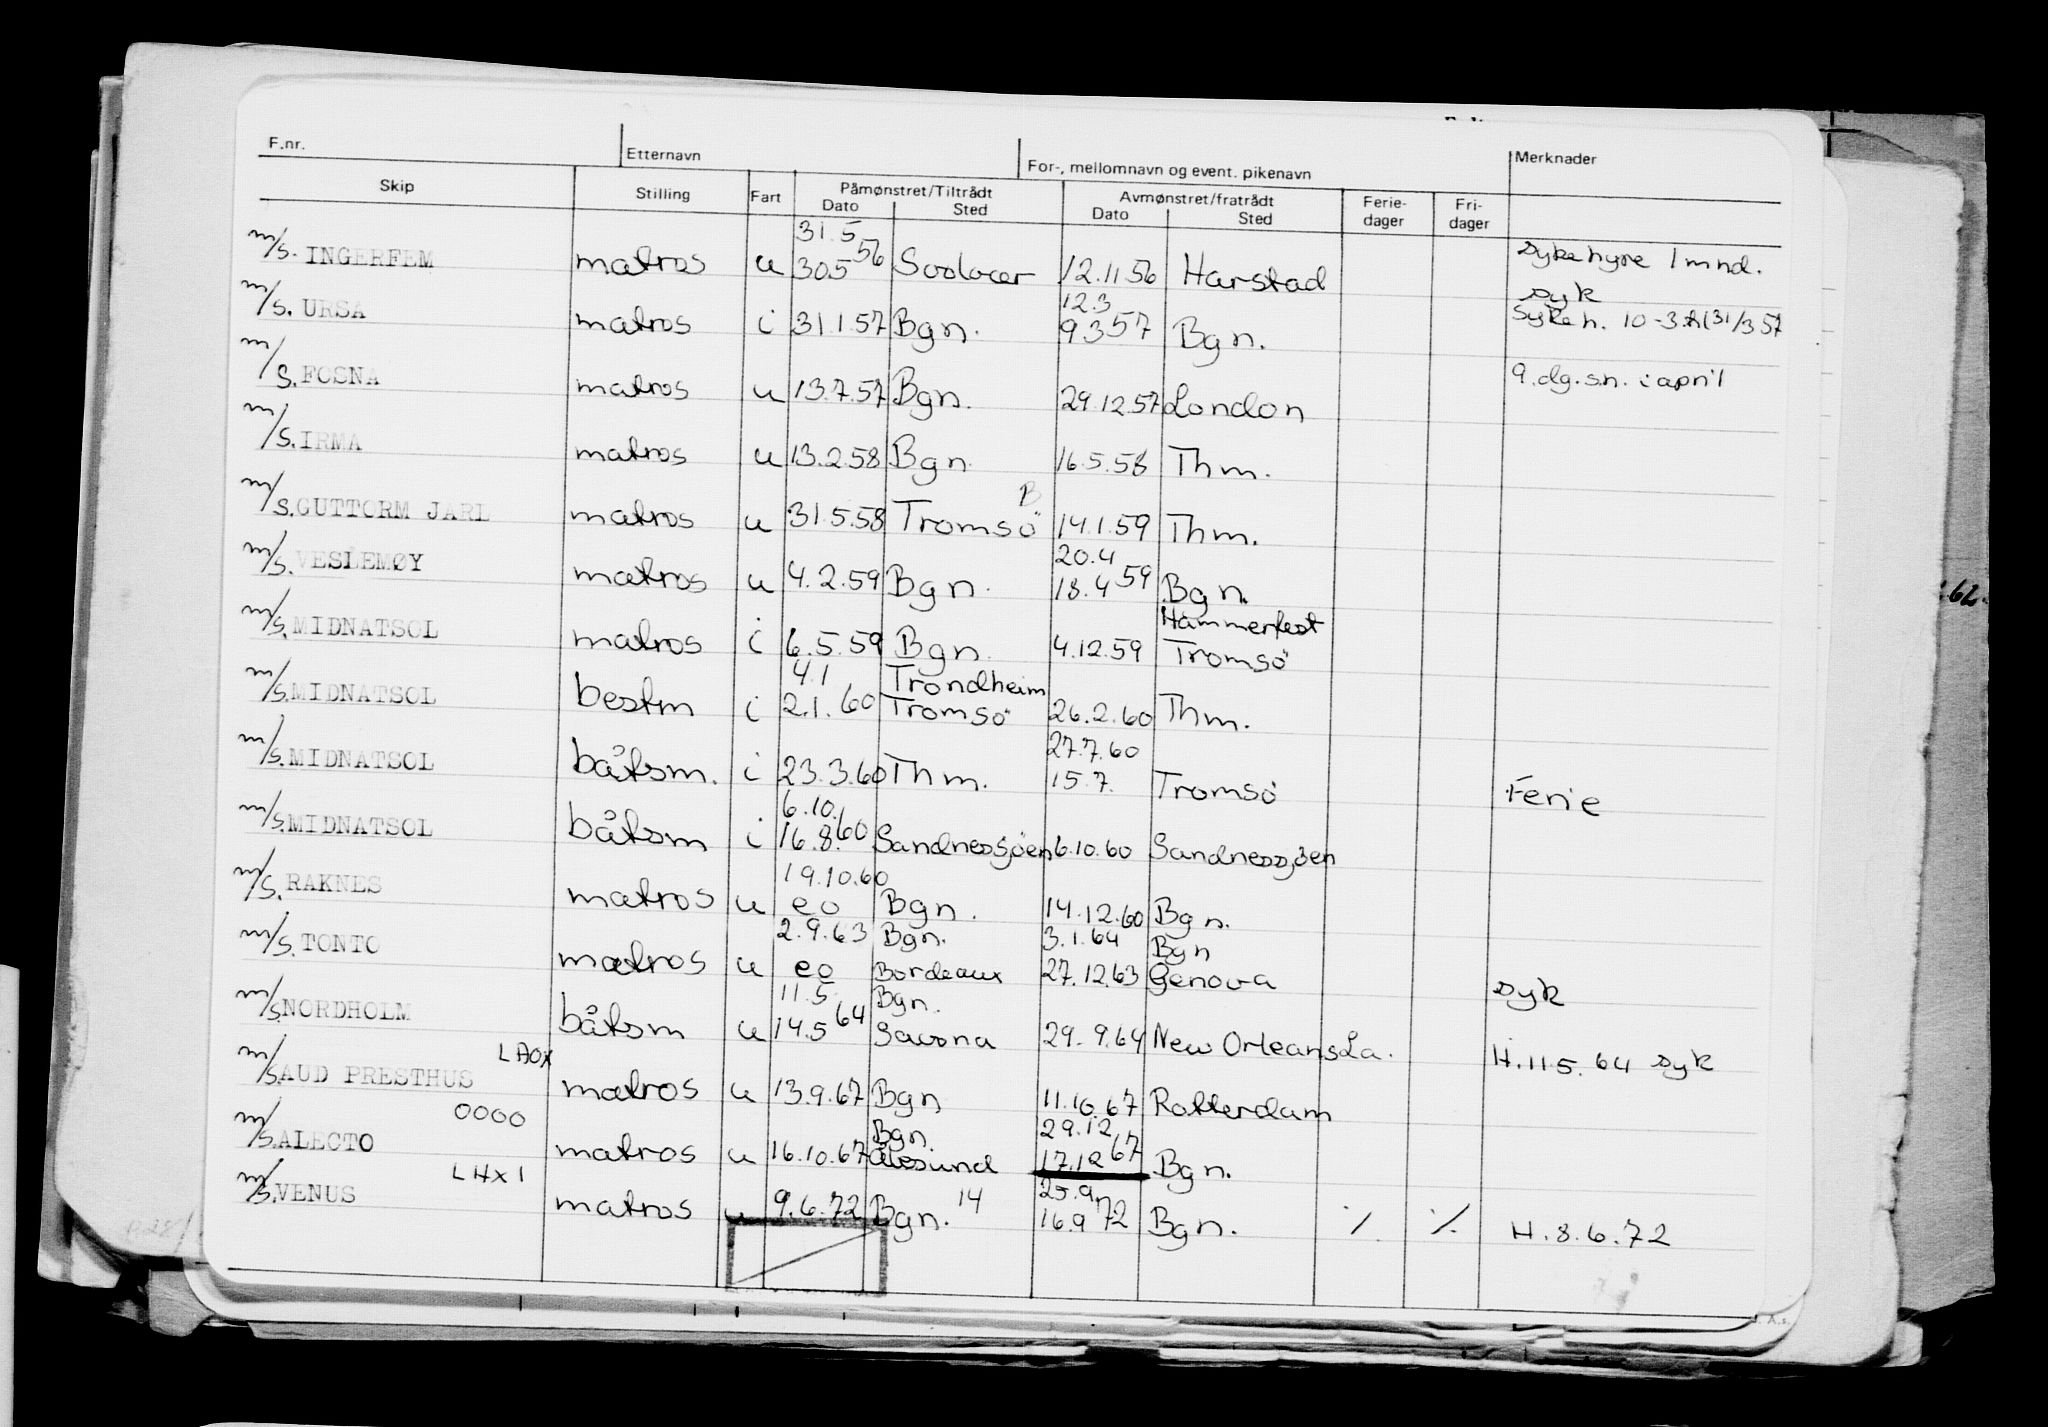 F.nr. Etternavn For-, mellomnavn og event. pikenavn Merknader
Skip Stilling Fart Påmønstret/Tiltrådt Avmønstret/fratrådt Ferie- Fri-
Dato Sted Dato Sted dager dager
31.5
m/s. INGERFEM matros u 30.5 56 Svolvær 12.11 56 Harstad Sykehyre 1 mnd.
12.3 syk
m/s. URSA matros i 31.1.57 Bgn. 9 3 57 Bgn. Sykeh. 10-3 til 31/3 57
m/s. FOSNA matros u 13.7.57 Bgn. 29.12.57 London 9.dg.s.h. i april
m/s. IRMA matros u 13.2.58 Bgn. 16.5.58 Thm.
B
m/s. GUTTORM JARL matros u 31.5.58 Tromsö 14.1.59 Thm.
20.4
m/s. VESLEMØY matros u 4.2.59 Bgn. 18.4 59 Bgn.
Hammerfest
m/s. MIDNATSOL matros i 6.5.59 Bgn. 4.12.59 Tromsö
4.1 Trondheim
m/s. MIDNATSOL bestm i 2.1.60 Tromsö 26.2.60 Thm.
27.7.60
m/s. MIDNATSOL båtsm. i 23.3.60 Thm. 15.7. Tromsö Ferie
6.10.
m/s. MIDNATSOL båtsm i 16.8.60 Sandnessjöen 6.10.60 Sandnessjöen
19.10.60
m/s. RAKNES matros u eo Bgn. 14.12.60 Bgn.
2.9.63 Bgn. 3.1.64 Bgn
m/s. TONTO matros u eo Bordeaux 27.12.63 Genova syk
11.5 Bgn.
m/s. NORDHOLM båtsm u 14.5 64 Savona 29.9.64 New Orleans La. H.11.5.64 syk
LAOX
m/s. AUD PRESTHUS matros u 13.9.67 Bgn 11.10.67 Rotterdam
0000 Bgn 29.12
m/s. ALECTO matros u 16.10.67 Ålesund 17.12 67 Bgn.
LHXI 14 25.9.
m/s. VENUS matros u 9.6.72 Bgn. 16.9 72 Bgn. ٪ ٪ H.8.6.72
62.